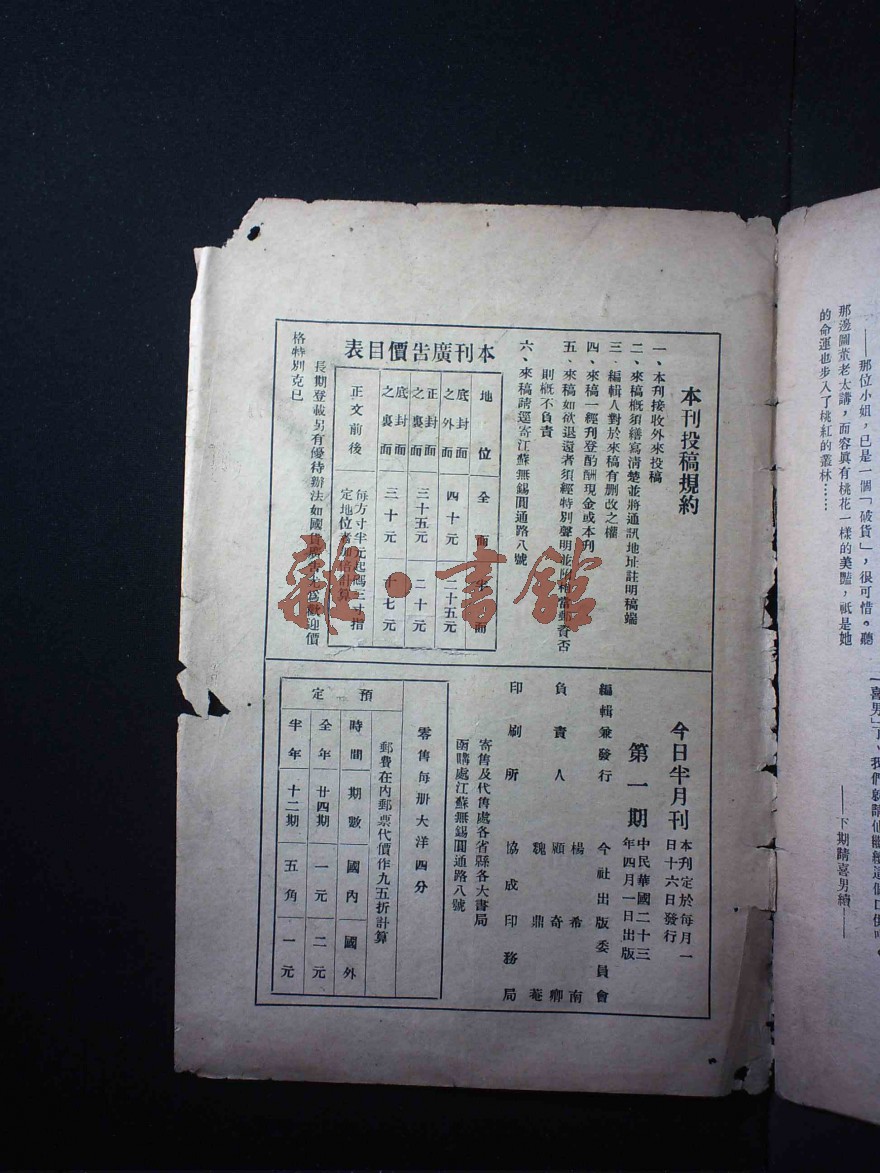 ——那位小姐，已是一個「破貨」，很可惜。聽
那邊圖董老太講，而容眞有桃花一樣的美豔，祇是她
的命運也步入了桃紅的叢林……
——下期請喜男續——
本刊投稿規約
一、本刊接收外來投稿
二、來稿概須繕寫清楚並將通訊地址註明稿端
三、編輯人對於來稿有删改之權
四、來稿一經刊登酌酬現金或本刊
五、來稿如欲退還者須經特別聲明並附相當郵資否
則概不負責
六、來稿請逕寄江蘇無錫圓通路八號
本刊廣告價目表
地位 全面 半面
底封面之外面 四十元 二十五元
正封面之裏面 三十五元 二十元
底封面之裏面 三十元 十七元
正文前後 每方寸半元起碼三寸指定地位者加倍計算
長期登載另有優待辦法如國貨廣告尤為歡迎價
格特別克已
今日半月刊
本刊定於每月一日十六日發行
第一期
中民華國二十三年四月一日出版
編輯兼發行 今社出版委員會
負責人 楊希南 顧奇卿 魏鼎菴
印刷所 協成印務局
寄售及代售處各省縣各大書局
函購處江蘇無錫圓通路八號
零售每册大洋四分
郵費在內郵票代價作九五折計算
預定
時間 期數 國內 國外
全年 廿四期 一元 二元
半年 十二期 五角 一元
雜·書館